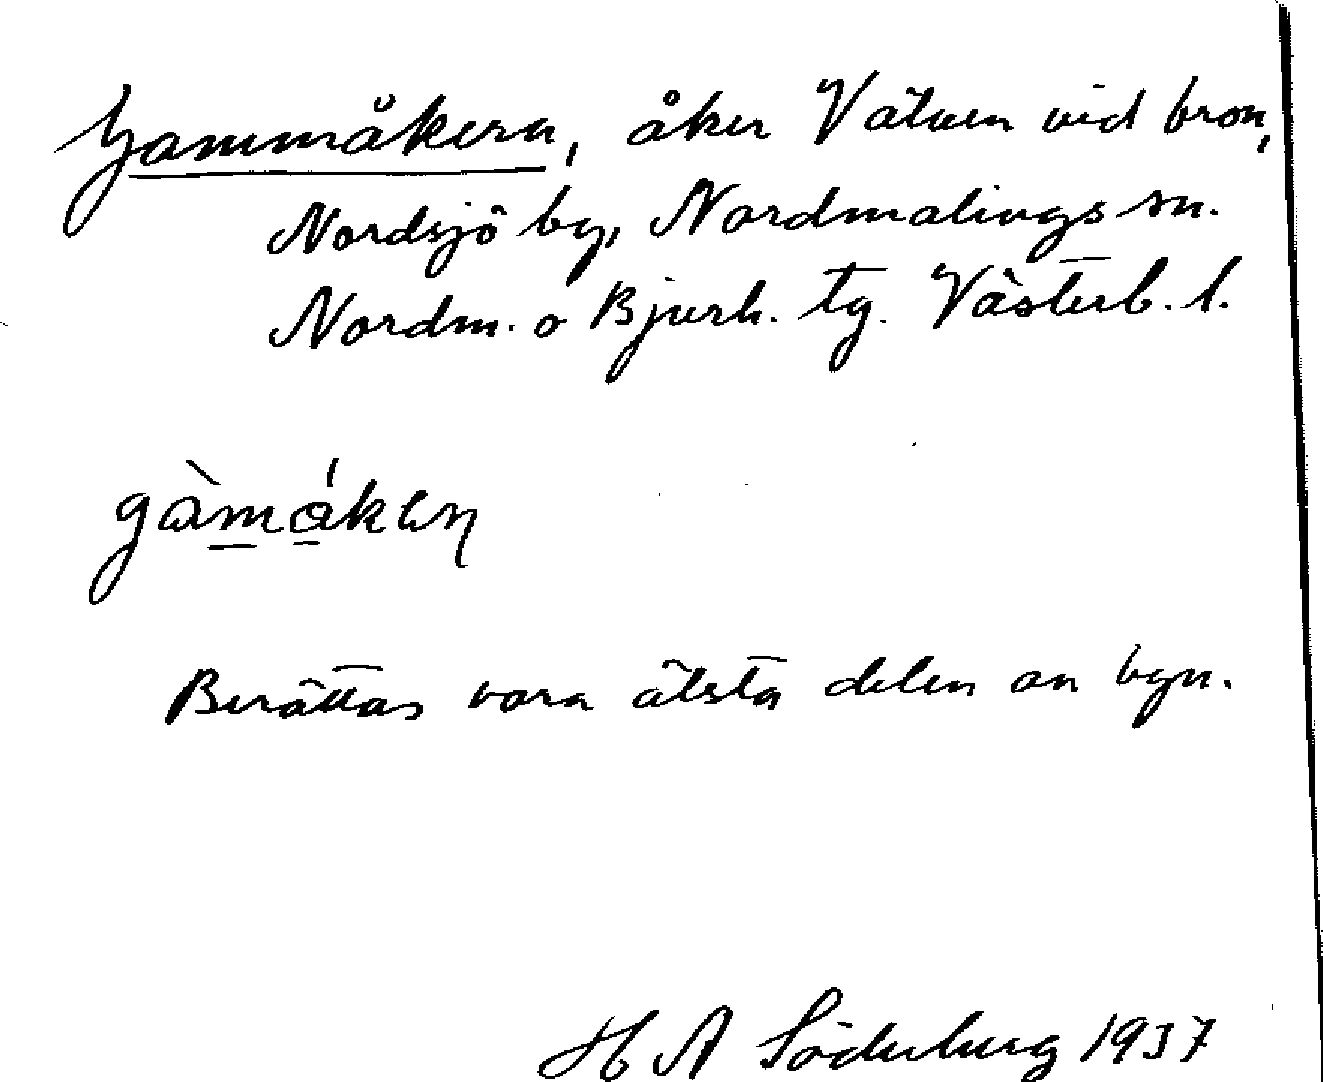 Gammåkern, åker V älven vid bron,
Nordsjö by, Nordmalings sn.
Nordm. o Bjurh. tg. Västerb. l.
gàmákeɳ
Berättas vara älsta delen av byn.
H A Söderberg 1937